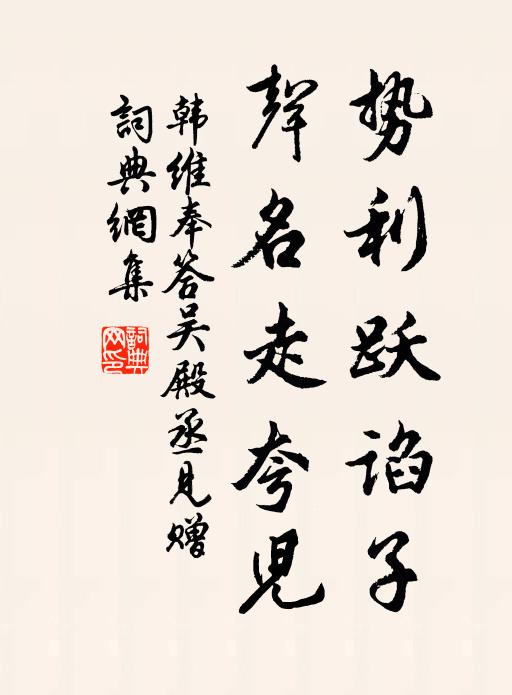 势利跃谄子
聲名走夸児
韩维奉答吴殿丞见赠
詞典網集
詞典網印